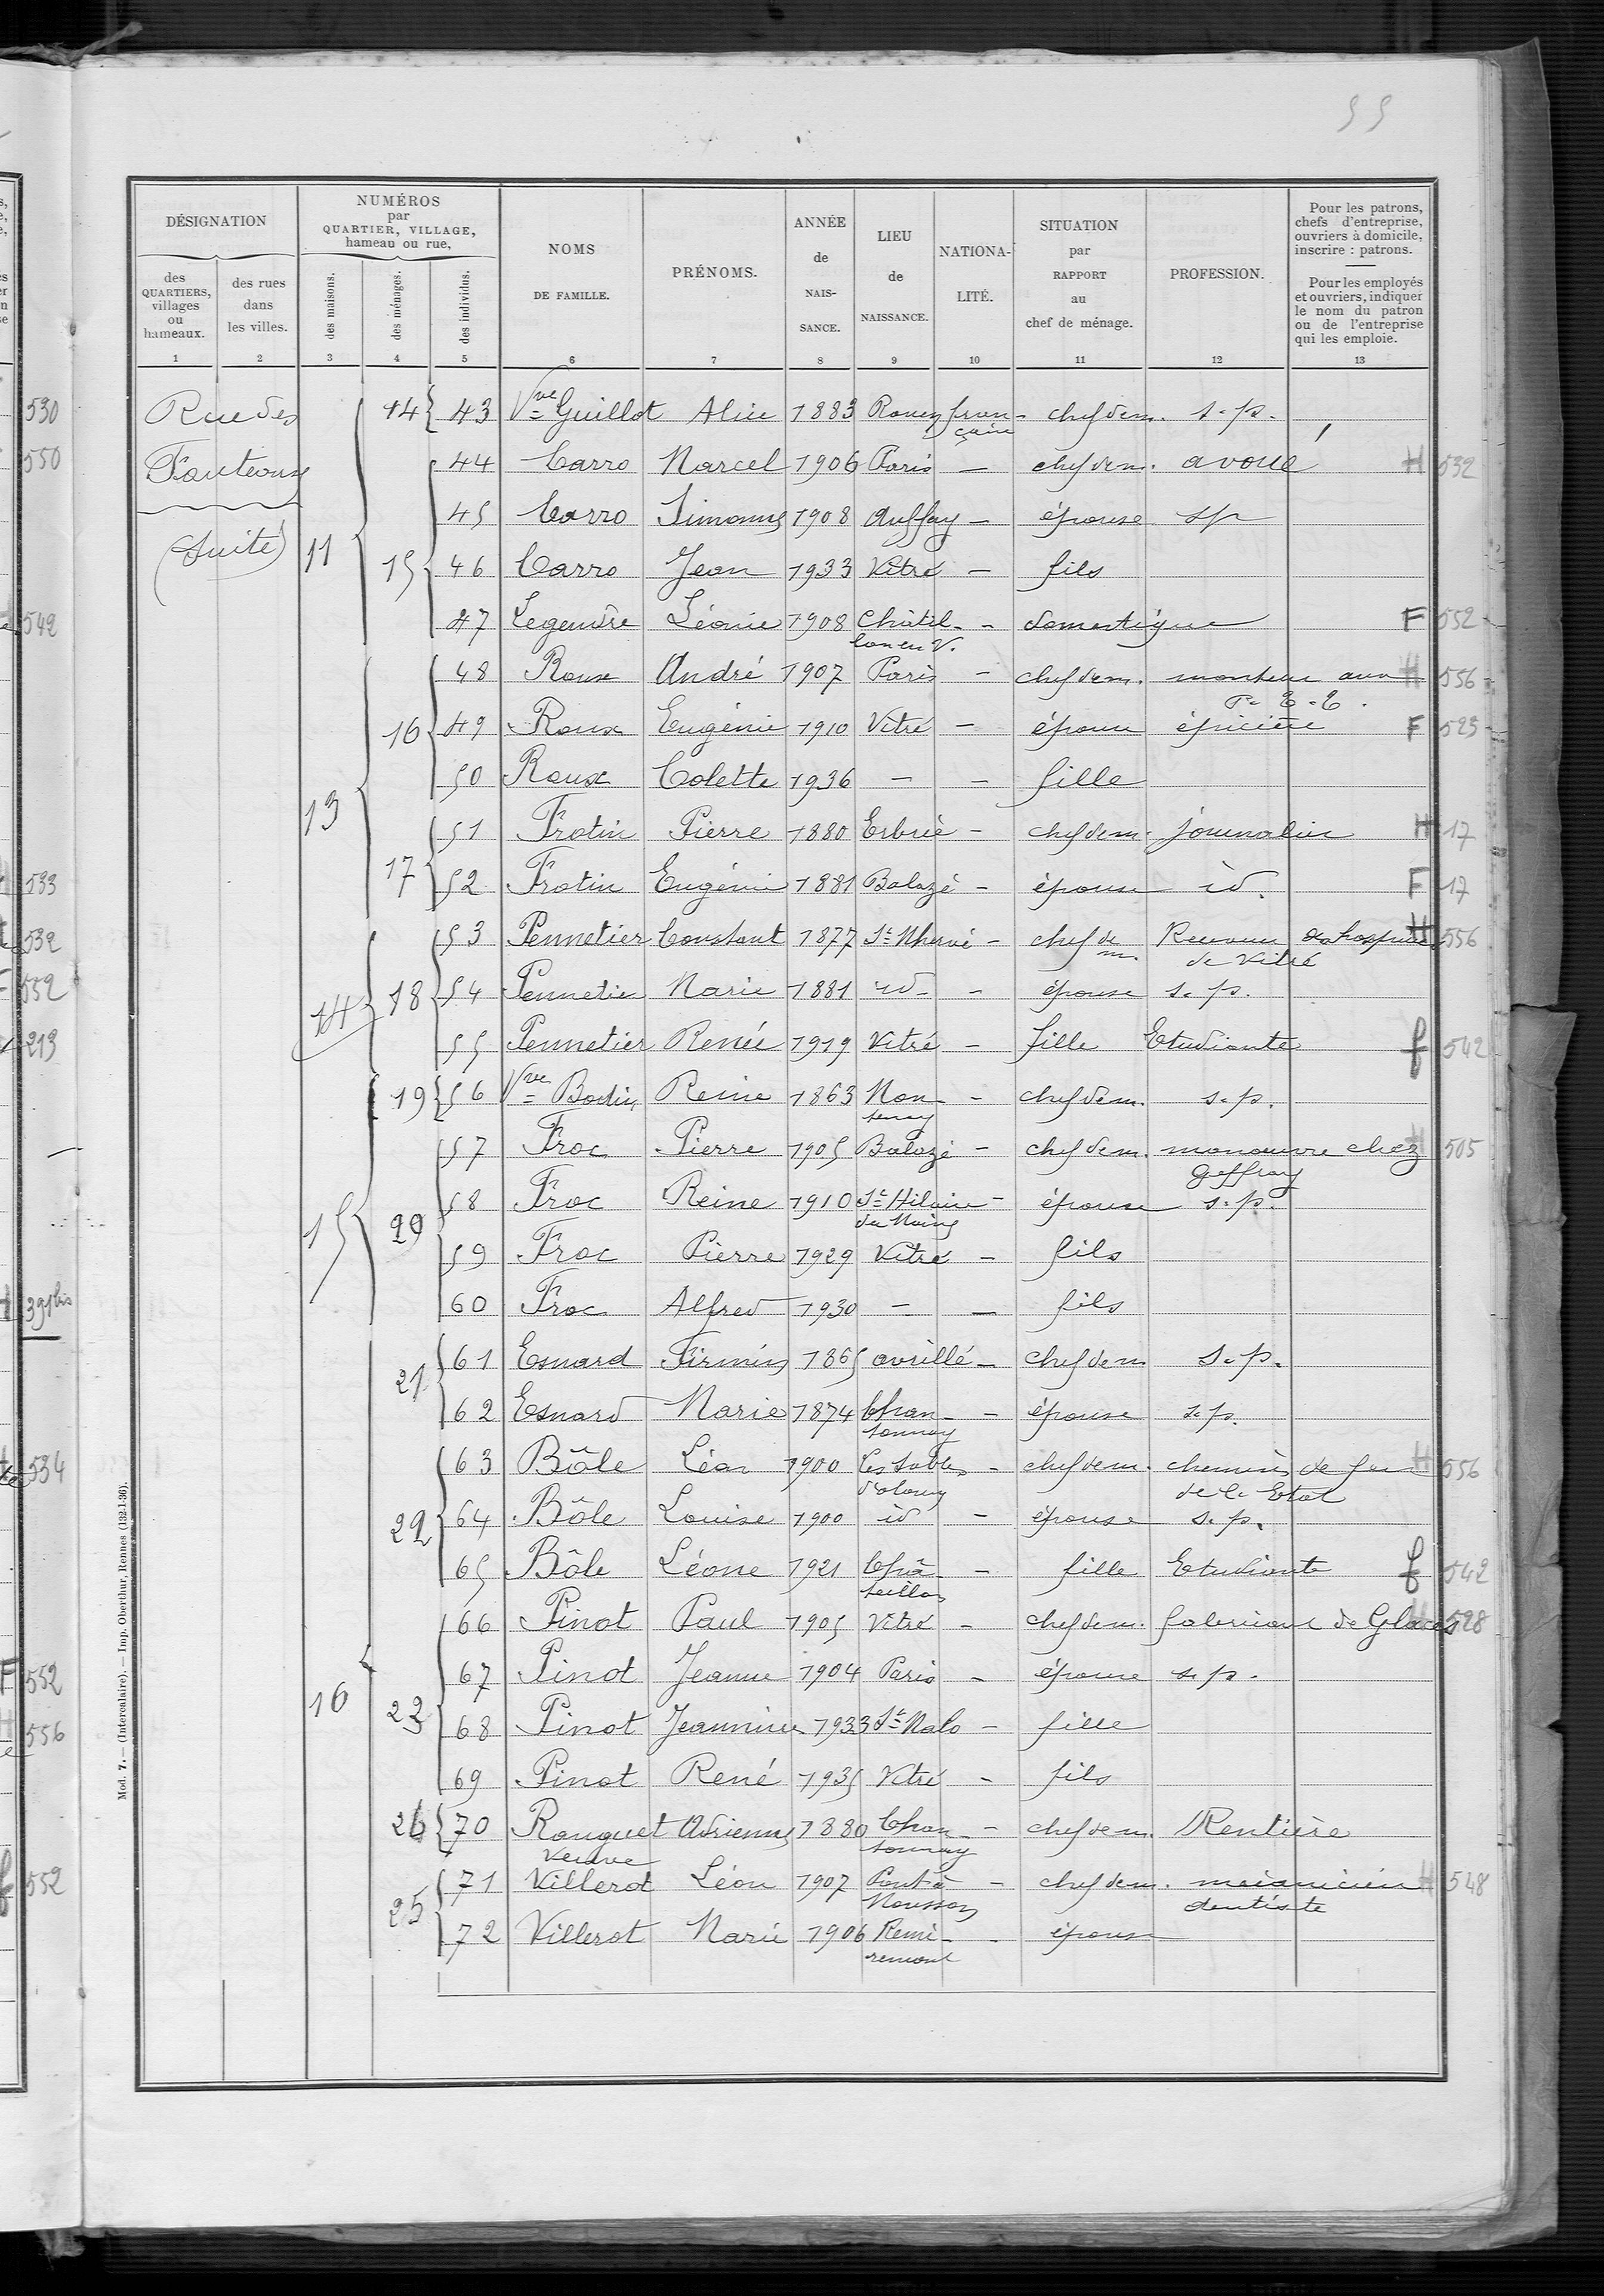 55
DÉSIGNATION
des QUARTIERS, villages ou hameaux.
des rues dans les villes.
NUMÉROS par QUARTIER, VILLAGE, hameau ou rue,
des maisons.
des ménages.
des individus.
NOMS DE FAMILLE.
PRÉNOMS.
ANNÉE de NAISSANCE.
LIEU de NAISSANCE.
NATIONALITÉ.
SITUATION par RAPPORT au chef de ménage.
PROFESSION.
Pour les patrons, chefs d'entreprise, ouvriers à domicile, inscrire : patrons.
Pour les employés et ouvriers, indiquer le nom du patron ou de l'entreprise qui les emploie.
1 2 3 4 5 6 7 8 9 10 11 12 13
Rue des
Fauteaux
(suite)
14 43 Vve Guillot Alice 1883 Rouen française chef de m. s.p.
11 15 44 Carro Marcel 1906 Paris — chef de m. avoué H 532
45 Carro Simonne 1908 Auffay — épouse sp
46 Carro Jean 1933 Vitré — fils
47 Legendre Léonie 1908 Châtillon en V. - domestique F 552
13 16 48 Roux André 1907 Paris - chef de m. monteur aux P.T.T. H 556
49 Roux Eugénie 1910 Vitré - épouse épicière F 523
50 Roux Colette 1936 - - fille
17 51 Frotin Pierre 1880 Erbrée - chef de m. journalier H 17
52 Frotin Eugénie 1881 Balazé - épouse id. F 17
14 18 53 Pennetier Constant 1877 St Mhervé - chef de m. Receveur hospices de Vitré H 556
54 Pennetier Marie 1881 id - - épouse s.p.
55 Pennetier Renée 1919 Vitré - fille Etudiante f 542
15 19 56 Vve Bodin Reine 1863 - chef de m. s.p.
20 57 Froc Pierre 1905 Balazé - chef de m. manoeuvre chez Geffray 505
58 Froc Reine 1910 St Hilaire des - épouse s.p.
59 Froc Pierre 1929 Vitré - fils
60 Froc Alfred 1930 - - fils
16 21 61 Esnard Firmin 1865 avrillé - chef de m s.p.
62 Esnard Marie 1874 Chantonnay - épouse s.p.
22 63 Bôle Léon 1900 Les Sables d'olonne - chef de m. chemins de fer de l'Etat H 556
64 Bôle Louise 1900 id - épouse s.p.
65 Bôle Léone 1921 - fille Etudiante f 542
23 66 Pinot Paul 1905 Vitré - chef de m. fabricant de Glaces 528
67 Pinot Jeanne 1904 Paris - épouse s.p.
68 Pinot Jeannine 1933 St Malo - fille
69 Pinot René 1935 Vitré - fils
70 Rouquet veuve Adrienne 1880 Chantonnay - chef de m. Rentière
25 71 Villerot Léon 1907 Pont à Mousson - chef de m. mécanicien dentiste H 548
72 Villerot Marie 1906 Remiremont - épouse
Mod. 7. — (Intercalaire). — Imp. Oberthur, Rennes (132-1-36).
530
550
542
533
532
552
213
391bis
534
F 552
556
552